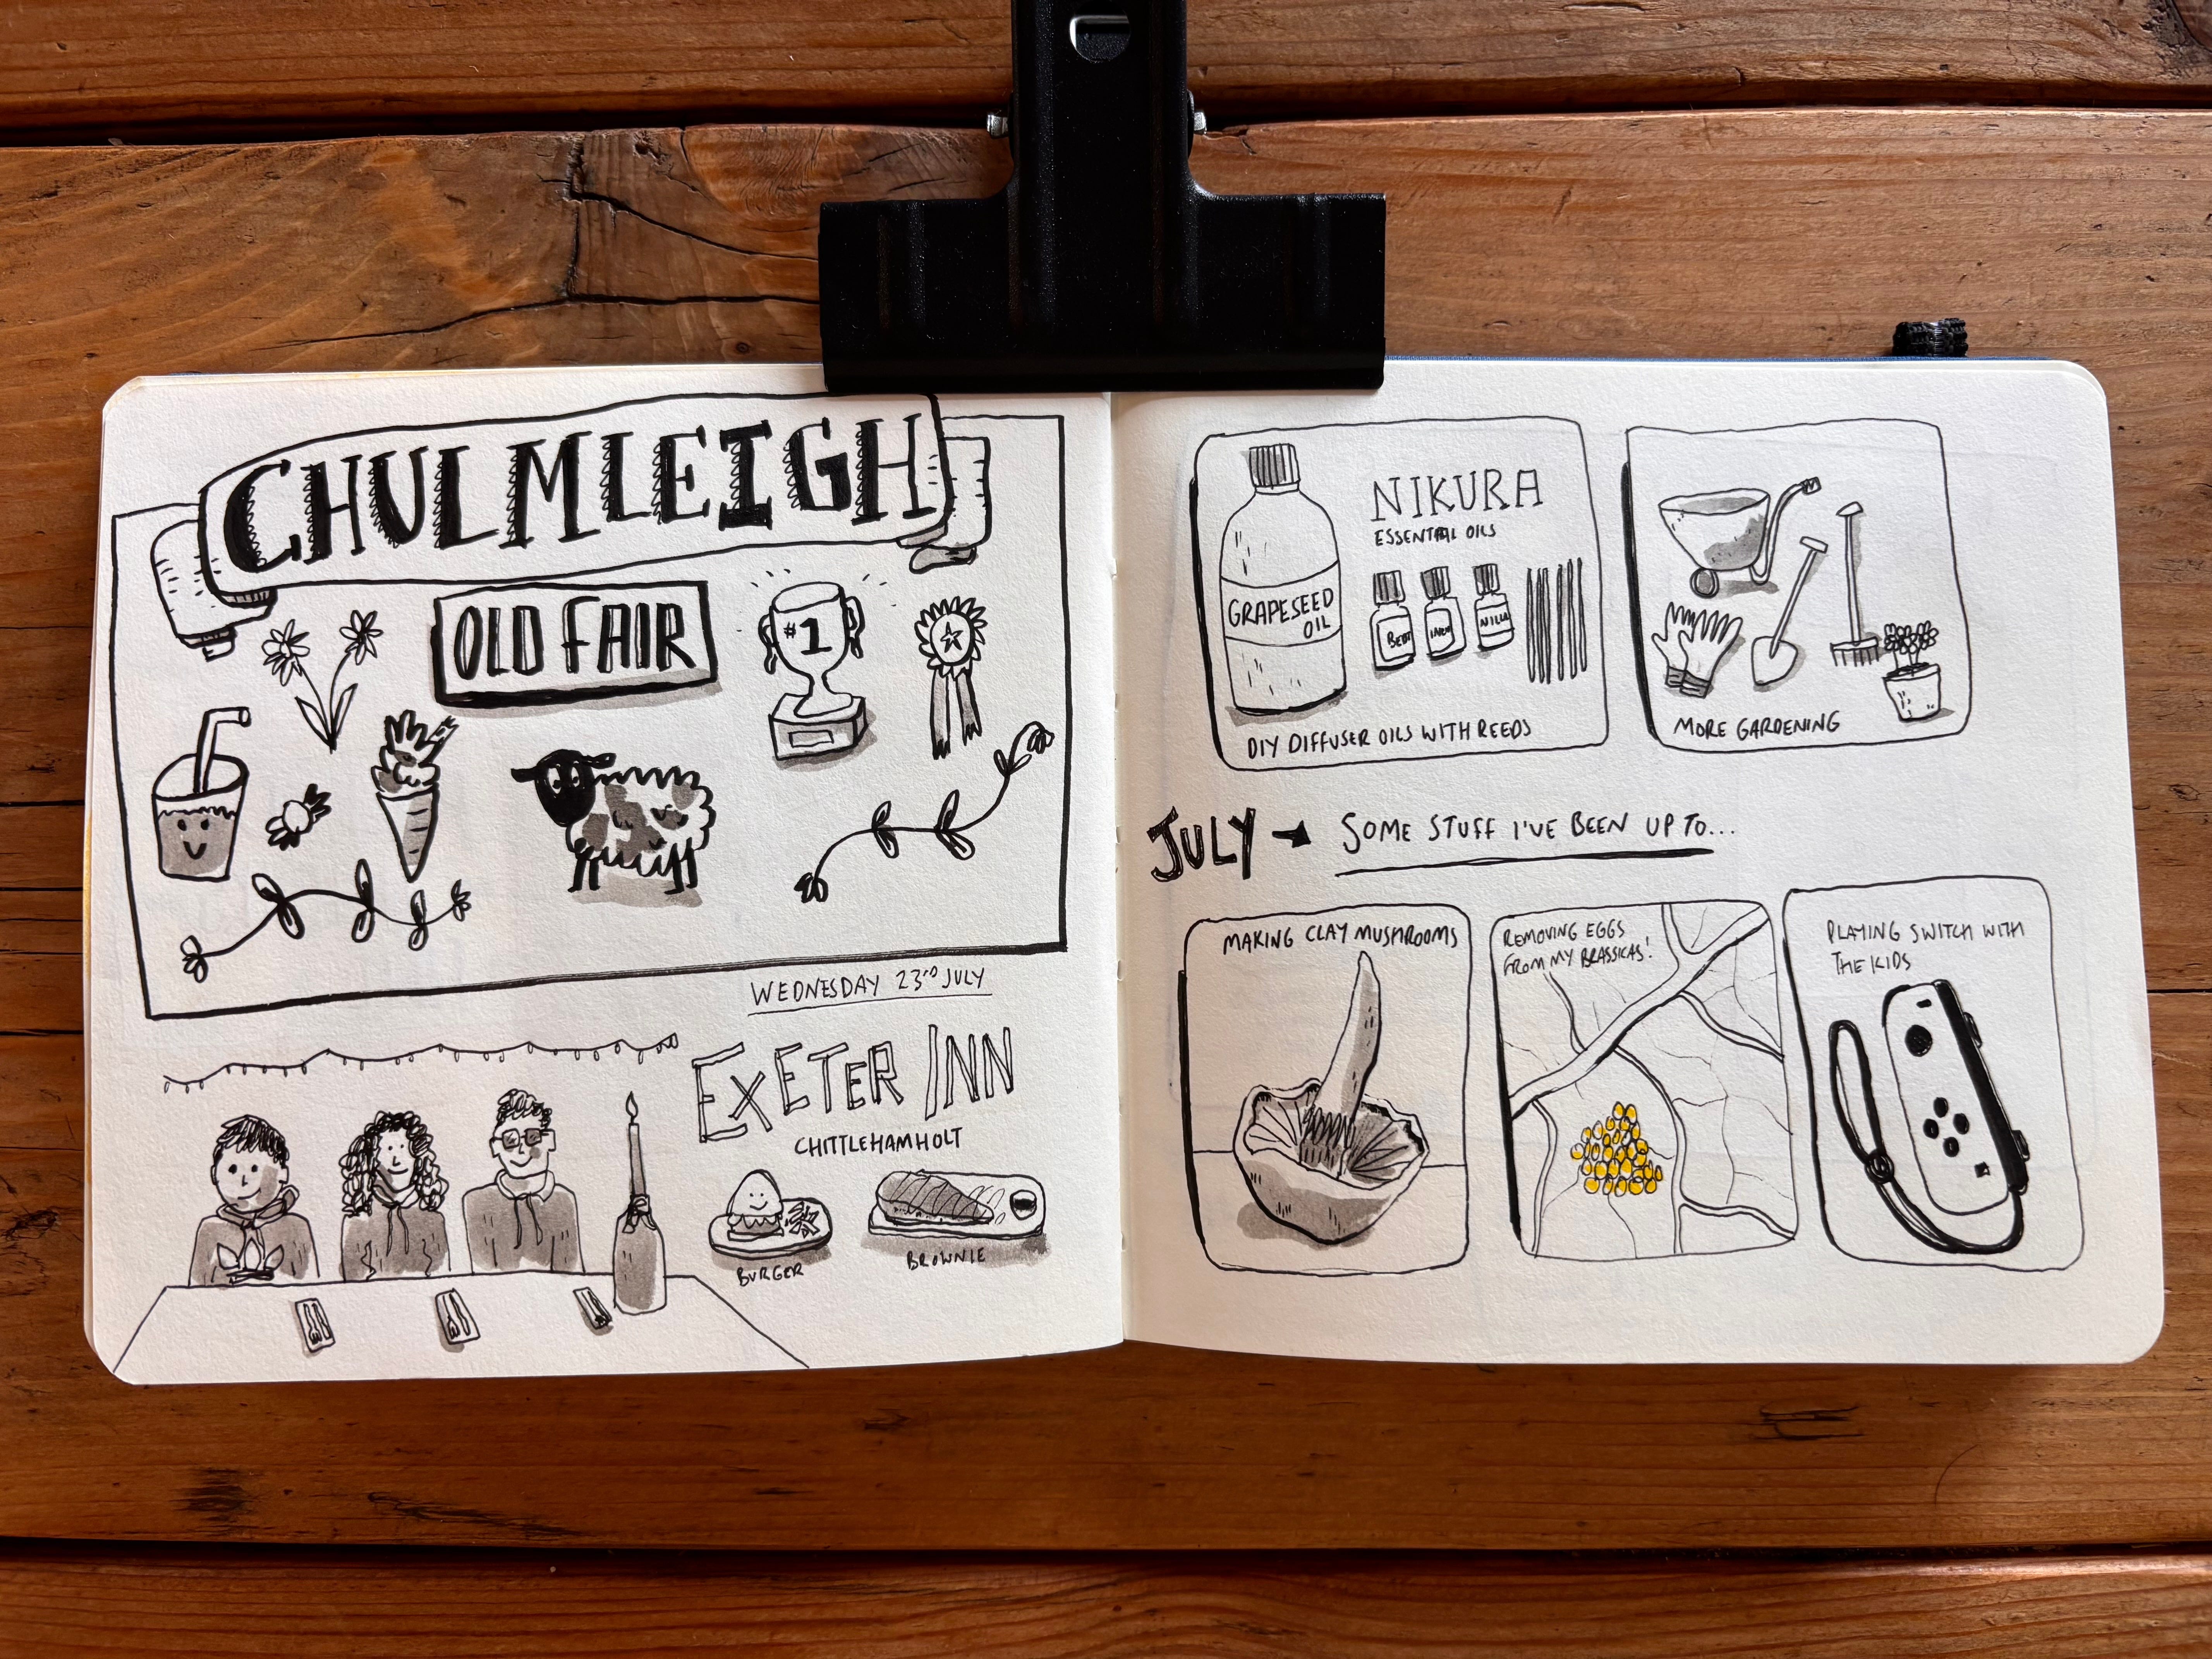 CHULMLEIGH
OLD FAIR
#1
WEDNESDAY 23RD JULY
EXETER INN
CHITTLEHAMHOLT
BURGER
BROWNIE
NIKURA
ESSENTIAL OILS
GRAPESEED
OIL
DIY DIFFUSER OILS WITH REEDS
MORE GARDENING
JULY → SOME STUFF I'VE BEEN UP TO...
MAKING CLAY MUSHROOMS
REMOVING EGGS
FROM MY BRASSICAS!
PLAYING SWITCH WITH
THE KIDS